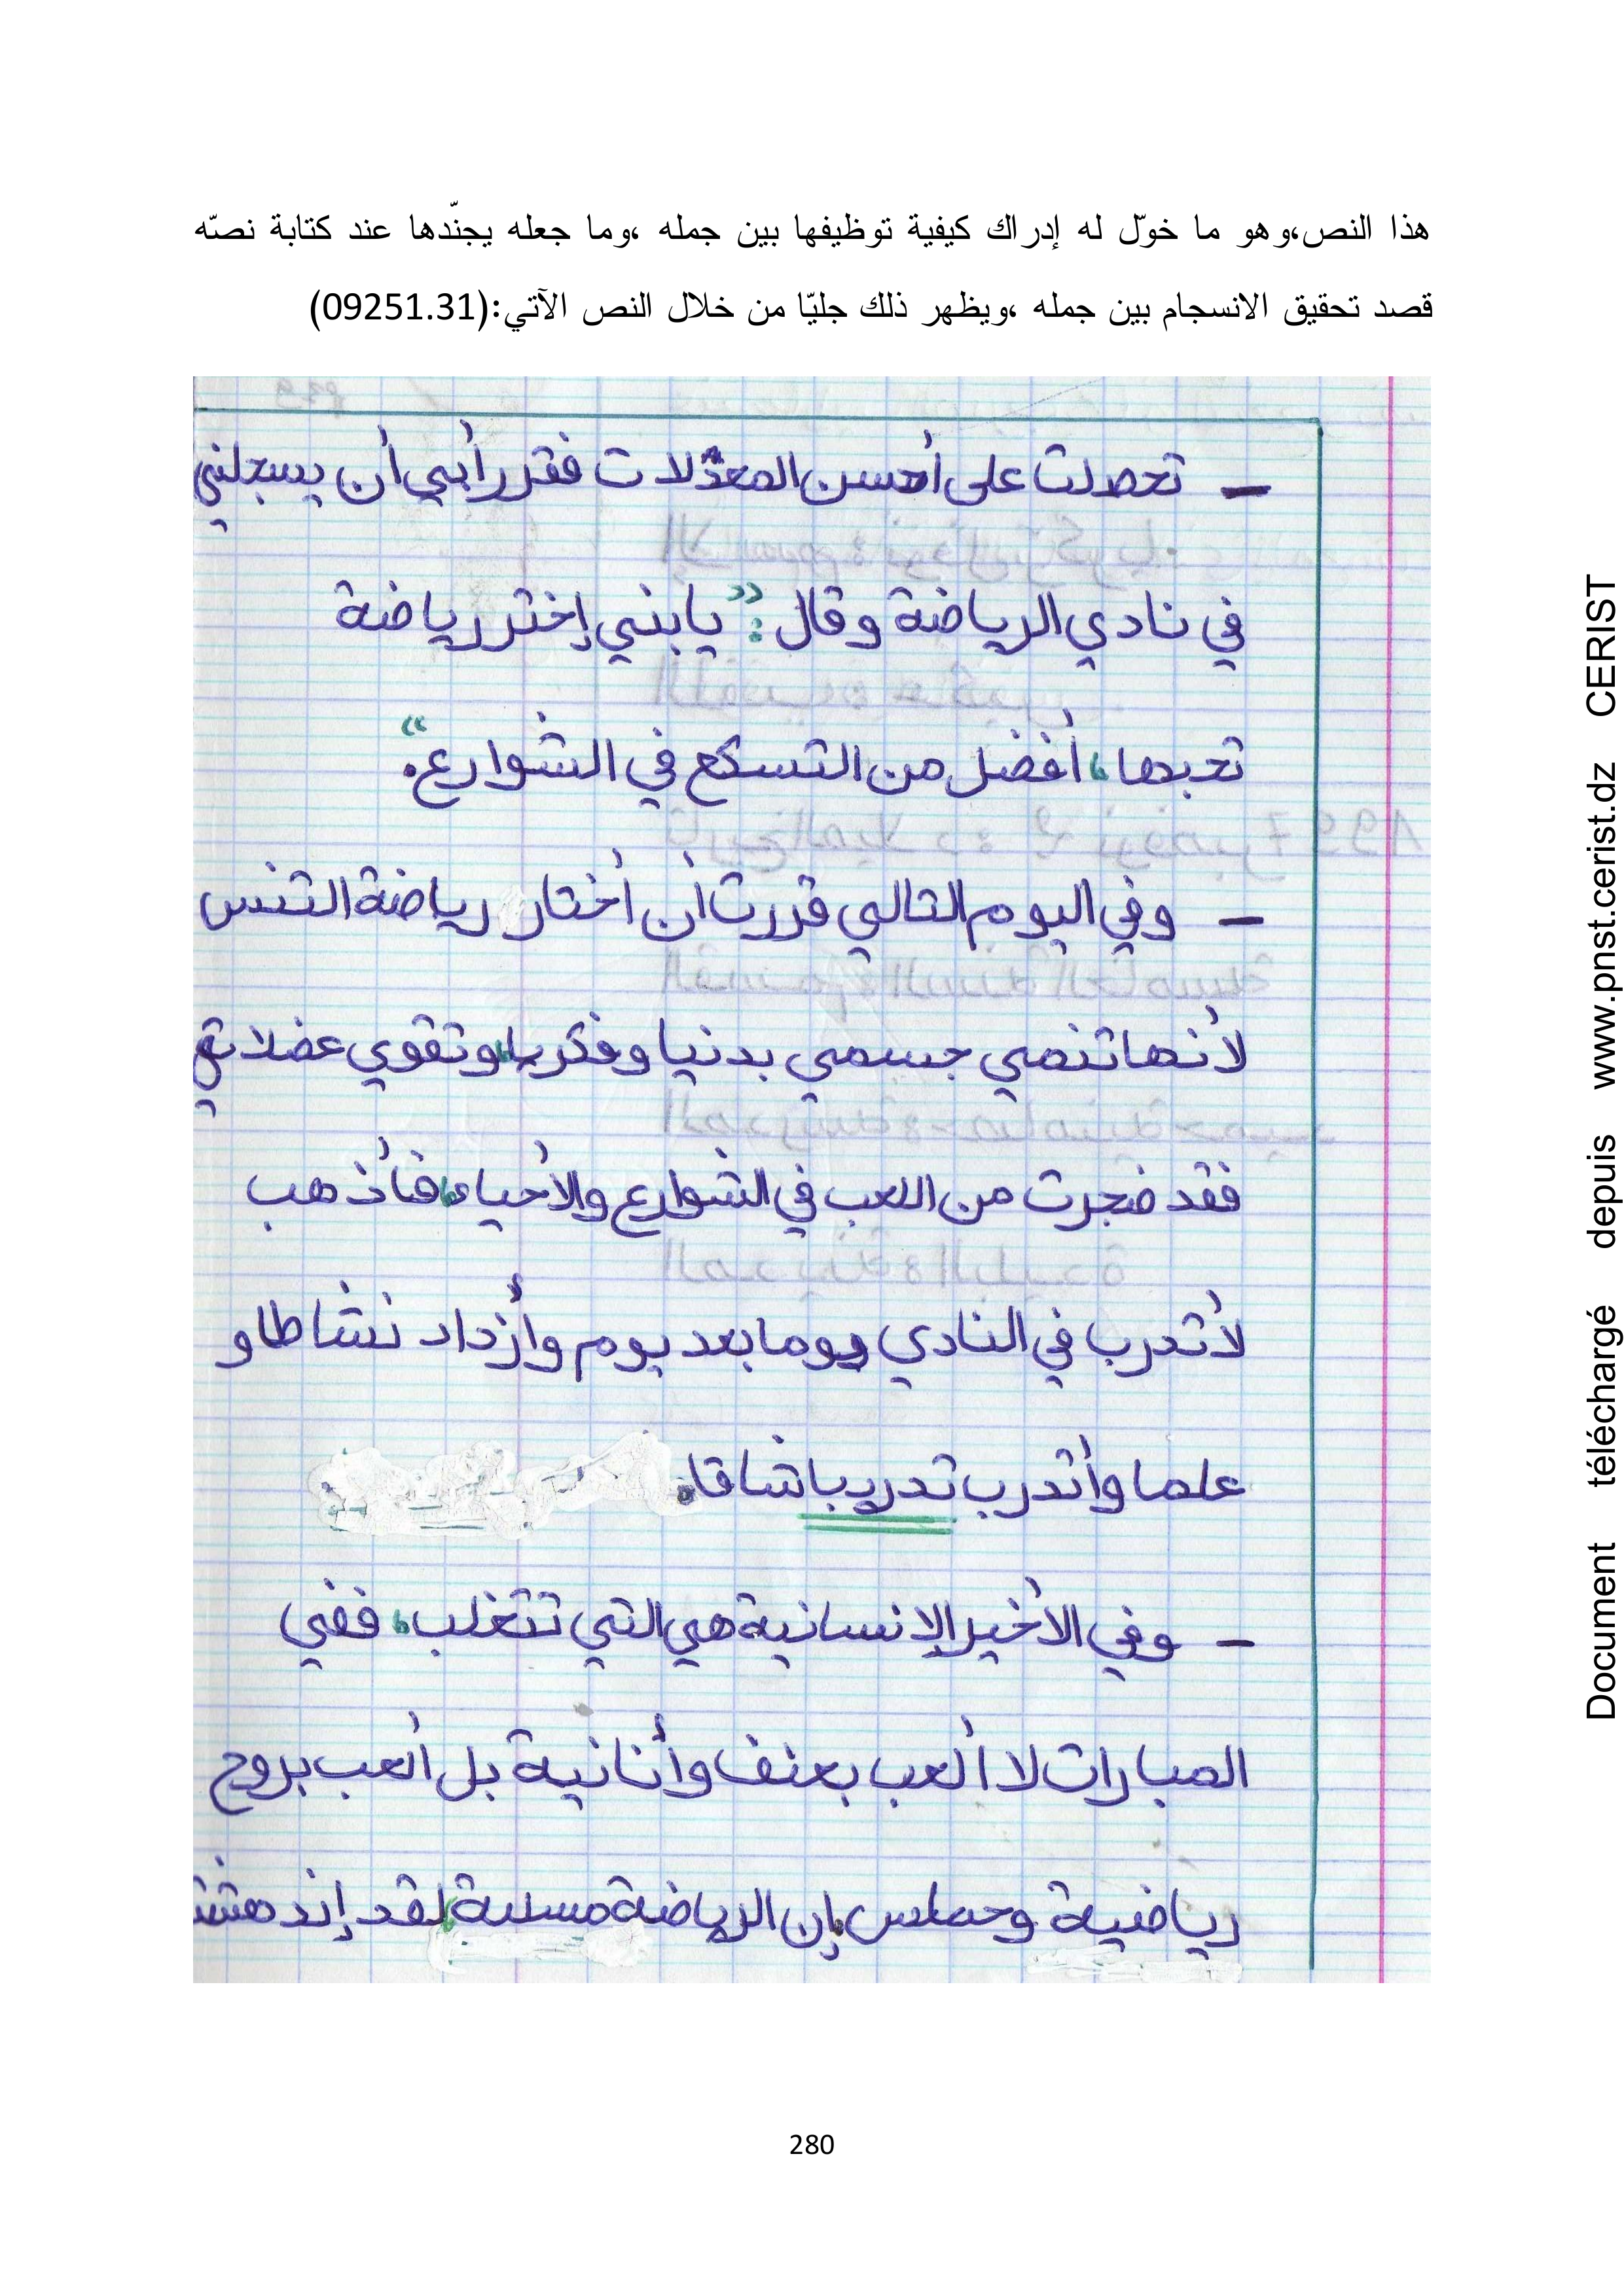 هذا النص،وهو ما خوّل له إدراك كيفية توظيفها بين جمله ،وما جعله يجنّدها عند كتابة نصّه
قصد تحقيق الانسجام بين جمله ،ويظهر ذلك جليّا من خلال النص الآتي:(09251.31)
– تحصلت على أحسن المعدّلات فقرر أبي أن يسجلني
في نادي الرياضة وقال: "يابني إختر رياضة
تحبها، أفضل من التسكع في الشوارع."
– وفي اليوم التالي قررت أن أختار رياضة التنس
لأنها تنمي جسمي بدنيا وفكريا، وتقوي عضلاتي
فقد ضجرت من اللعب في الشوارع والأحياء، فأذهب
لأتدرب في النادي يوما بعد يوم وأزداد نشاطا و
علما وأتدرب تدريبا شاقا.
– وفي الأخير الإنسانية هي التي تتغلب، ففي
المبارات لا ألعب بعنف وأنانية بل ألعب بروح
رياضية وحماس إن الرياضة مسلية، لقد إندهشت
280
Document téléchargé depuis www.pnst.cerist.dz CERIST